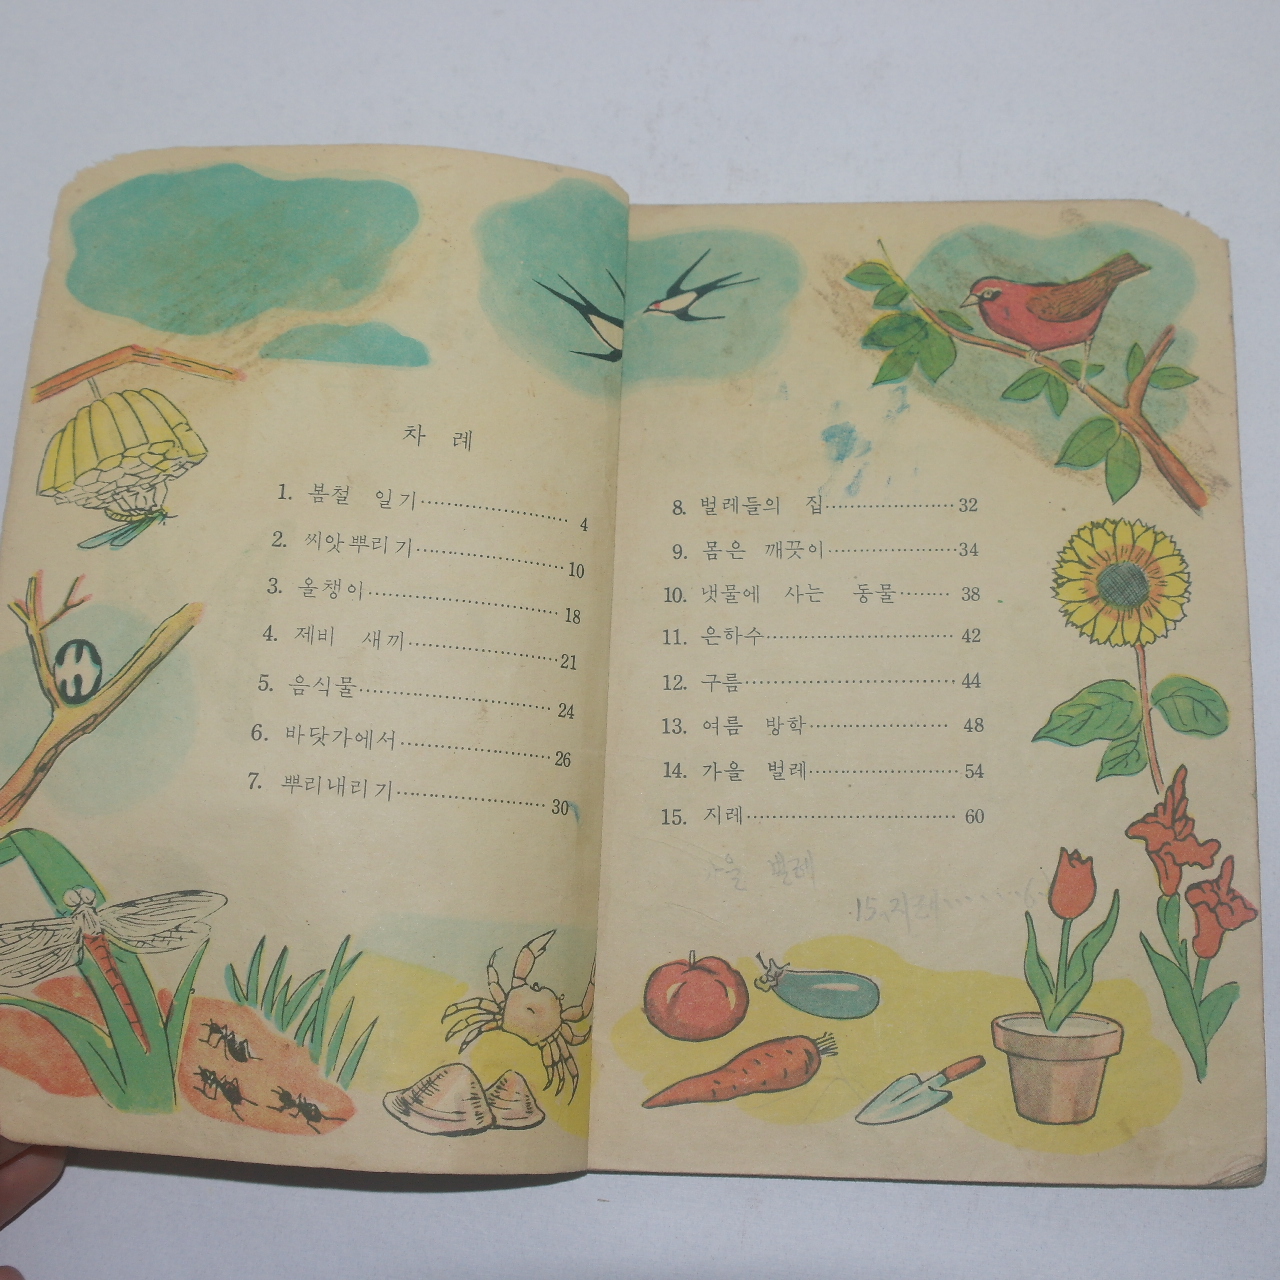 차 례
1. 봄철 일기 4
2. 씨앗뿌리기 10
3. 올챙이 18
4. 제비 새끼 21
5. 음식물 24
6. 바닷가에서 26
7. 뿌리내리기 30
8. 벌레들의 집 32
9. 몸은 깨끗이 34
10. 냇물에 사는 동물 38
11. 은하수 42
12. 구름 44
13. 여름 방학 48
14. 가을 벌레 54
15. 지레 60
가을 벌레
15. 지레